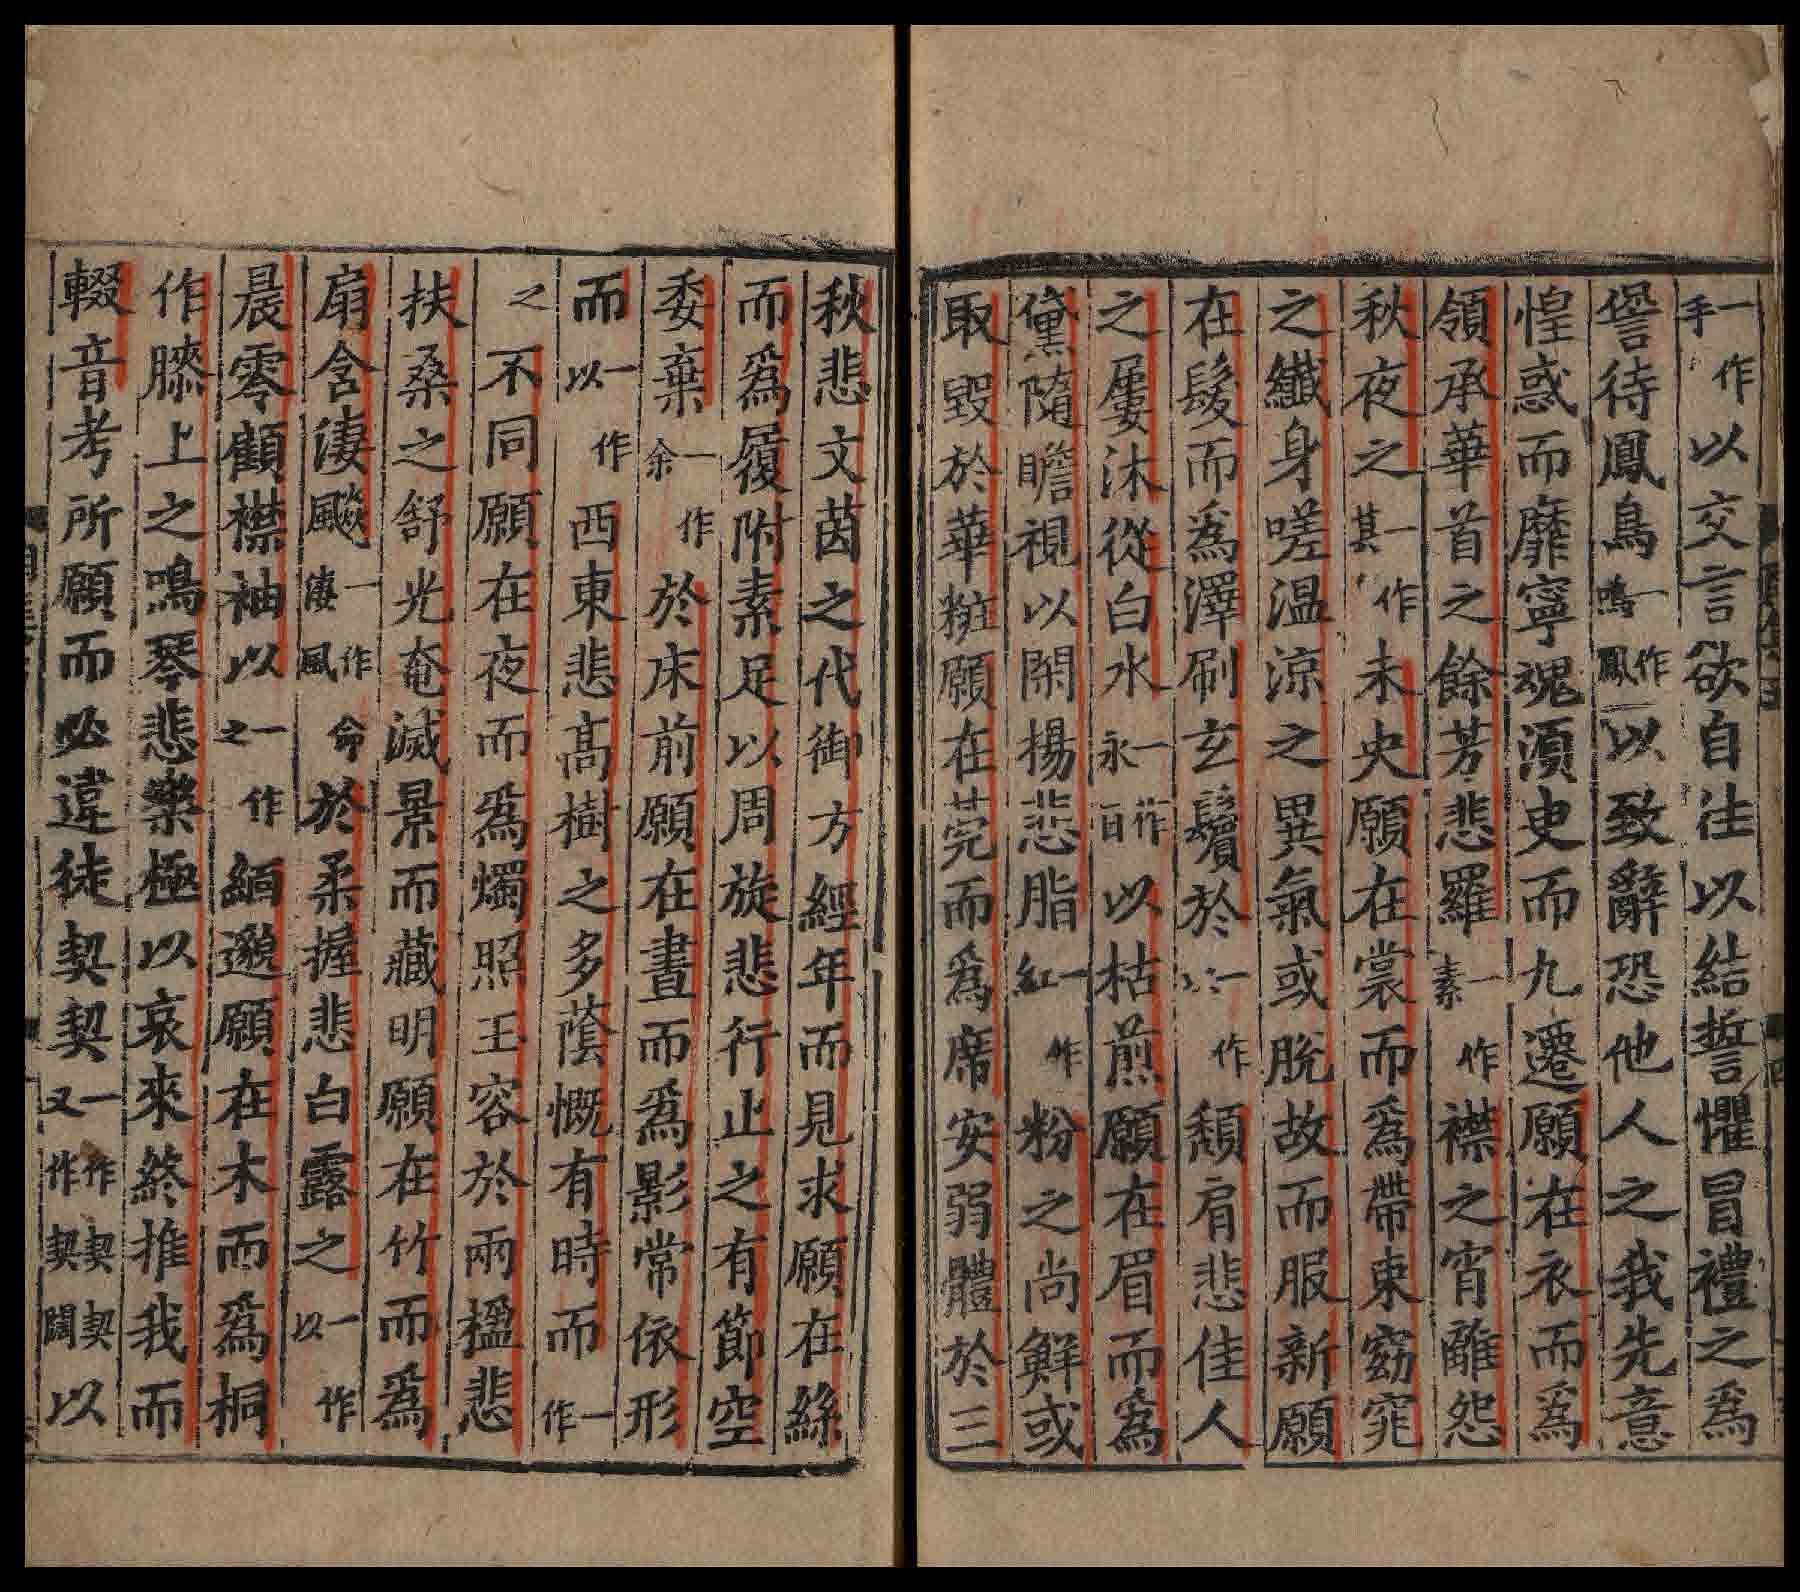 一作手以交言欲自往以結誓懼冒禮之爲
諐待鳳鳥一作鳴鳳以致辭恐他人之我先意
惶惑而靡寧魂湏㬰而九遷願在衣而爲
領承華首之餘芳悲羅一作素襟之宵離怨
秋夜之一作其未央願在裳而爲帶束窈窕
之纖身嗟温涼之異氣或脫故而服新願
在髮而爲澤刷玄鬢於一作以頹肩悲佳人
之屢沐從白水一作永日以枯煎願在眉而爲
黛隨瞻視以閑揚悲脂一作紅粉之尚鮮或
取毀於華粧願在莞而爲席安弱體於三
秋悲文茵之代御方經年而見求願在絲
而爲履附素足以周旋悲行止之有節空
委棄一作余於床前願在晝而爲影常依形
而一作以西東悲髙樹之多蔭慨有時而一作
之不同願在夜而爲燭照玉容於兩楹悲
扶桑之舒光奄滅景而藏明願在竹而爲
扇含淒飈一作淒風命於柔握悲白露之一作以
晨零顧襟袖以一作之緬邈願在木而爲桐
作膝上之鳴琴悲樂極以哀來終推我而
輟音考所願而必違徒契契一作契契又作契闊以